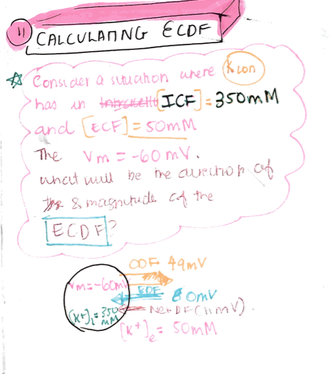 11
CALCULATING ECDF
Consider a situation where K ion
has in [ICF] = 350mM
and [ECF] = 50mM
The Vm = -60 mV.
what will be the direction of
& magnitude of the
ECDF?
CDF 49mV
Vm = -60mV
EDF 60mV
[K+]i = 350 mM
Net DF (11mV).
[K+]e = 50mM